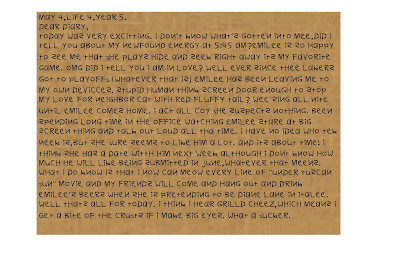 May 4,Life 4,Year 5.
Dear Diary,
Today was very exciting. I don't know what'z gotten into mee,Did i
tell you about my newfound energy at 5:45 am?Emilee iz zo happy
to zee me that she playz hide and zeek right away itz my favorite
game. OMG did i tell you i am in love? Well ever zince thee Lakerz
got to playoffz (whatever that iz) Emilee haz been leaving me to
my own devicez. Stupid human think zcreen door enough to ztop
my love for neighbor cat with red fluffy tail? Wee zing all nite
until Emilee comez home. I act all coy zhe zuzpectz nothing. Been
zpending long time in the office watching Emilee ztare at big
zcreen thing and talk out loud all tha time. I have no idea who tek
week iz,but zhe zure zeemz to like him a lot. And itz about time! I
think zhe haz a date with him next week although i don't know how
much he will like being zubmitted in June,whatever that meenz.
What i do know iz that i now can meow every line of "under tuzcan
zun" movie and my friendz will come and hang out and drink
Emilee'z beerz when zhe iz pretending to be Diane Lane in Italee.
Well thatz all for today. I think i hear grilld cheez,which meanz i
get a bite of the cruztz if i make big eyez. What a zucker.